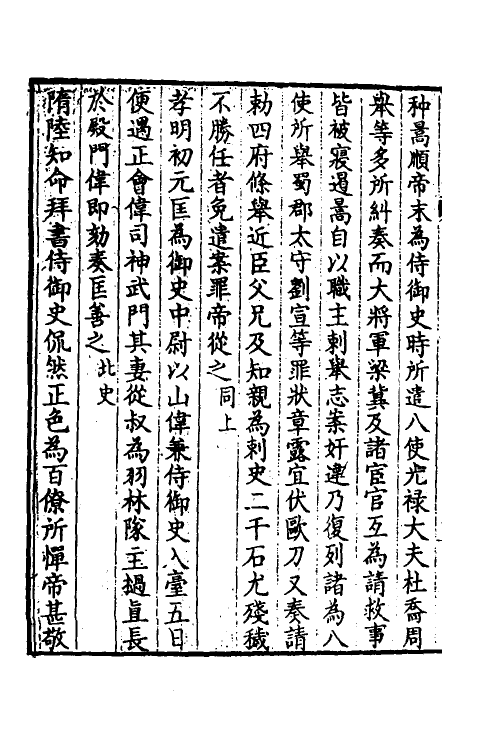 种暠順帝末為侍御史時所遣八使光禄大夫杜喬周
舉等多所糾奏而大將軍梁冀及諸宦官互為請救事
皆被寢遏暠自以職主刺舉志案奸違乃復列諸為八
使所舉蜀郡太守劉宣等罪狀章露宜伏歐刀又奏請
勅四府條舉近臣父兄及知親為刺史二千石尤殘穢
不勝任者免遣案罪帝從之同上
孝明初元匡為御史中尉以山偉兼侍御史入臺五日
便遇正會偉司神武門其妻從叔為羽林隊主撾直長
於殿門偉即劾奏匡善之北史
隋陸知命拜書侍御史侃然正色為百僚所憚帝甚敬